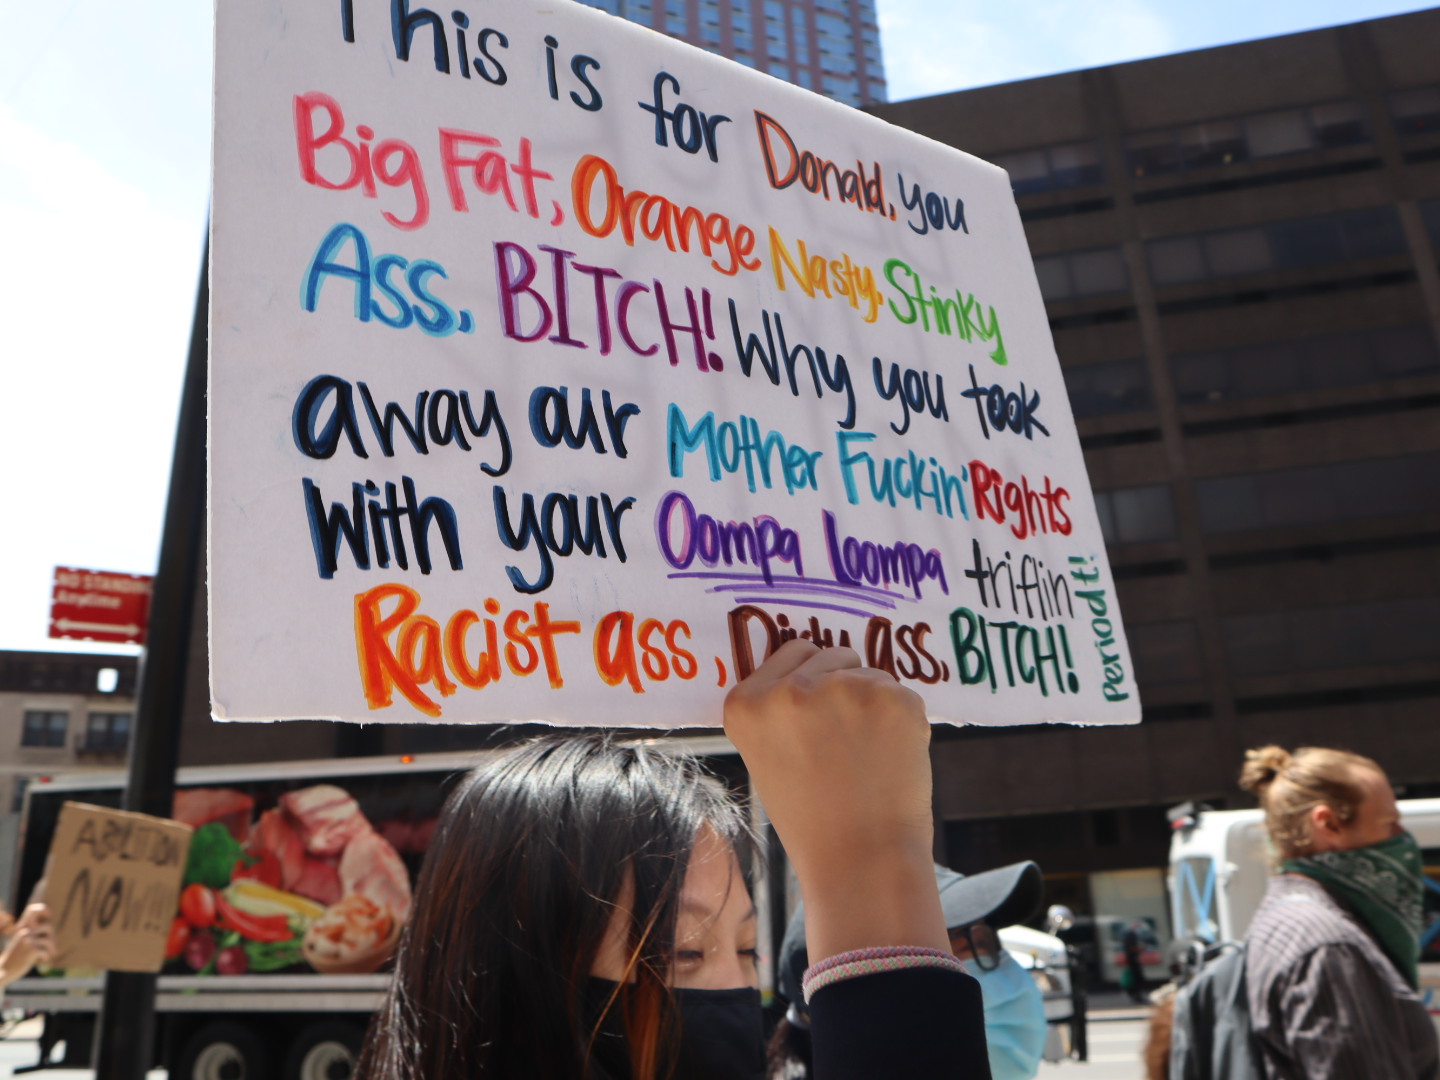 This is for Donald, you
Big Fat, Orange Nasty, Stinky
Ass, BITCH! Why you took
away our Mother Fuckin' Rights
with your Oompa Loompa triflin
Racist ass, Dirty ass, BITCH!
Periodt!
NO STANDING
Anytime
ABOLITION
NOW!!!